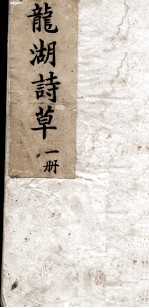 龍湖詩草
一册